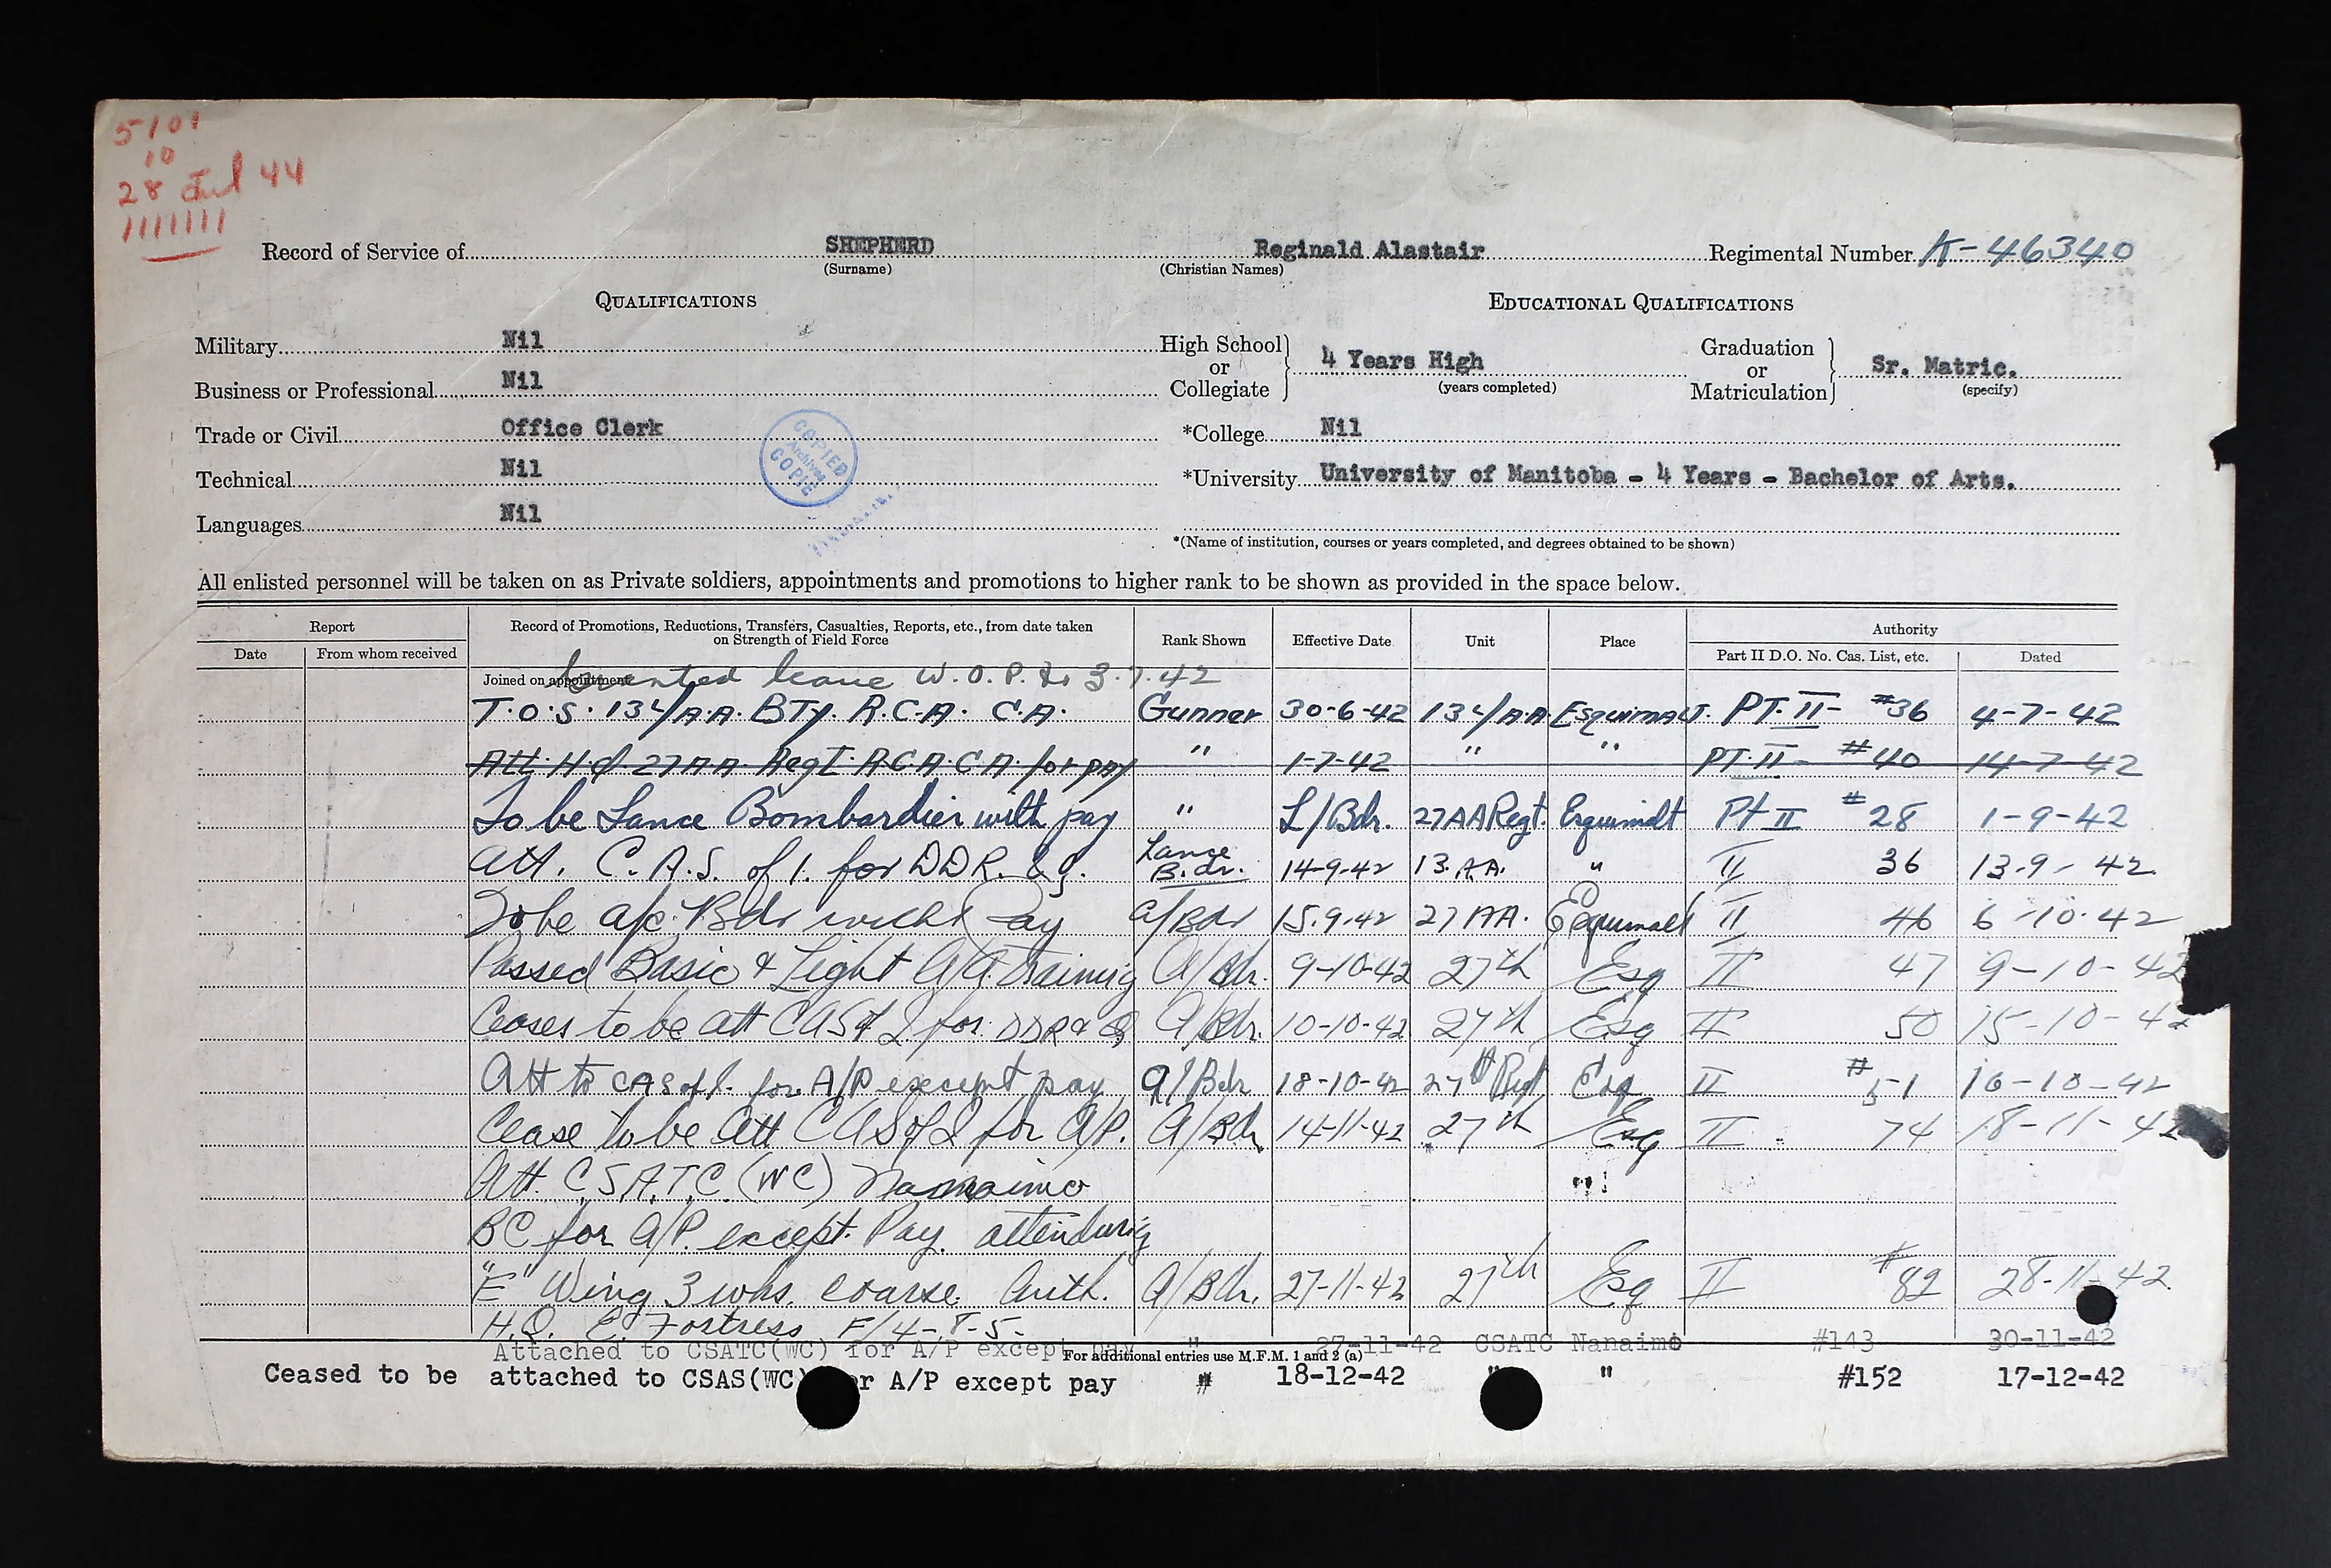 5101
10
28 Jul 44
1111111
Record of Service of SHEPHERD Reginald Alastair Regimental Number K-46340
(Surname) (Christian Names)
QUALIFICATIONS EDUCATIONAL QUALIFICATIONS
Military Nil High School or Collegiate 4 Years High (years completed) Graduation or Matriculation Sr. Matric. (specify)
Business or Professional Nil
Trade or Civil Office Clerk *College Nil
COPIED Archives COPIE
Technical Nil *University University of Manitoba - 4 Years - Bachelor of Arts.
Languages Nil
*(Name of institution, courses or years completed, and degrees obtained to be shown)
All enlisted personnel will be taken on as Private soldiers, appointments and promotions to higher rank to be shown as provided in the space below.
Report Record of Promotions, Reductions, Transfers, Casualties, Reports, etc., from date taken on Strength of Field Force Rank Shown Effective Date Unit Place Authority
Date From whom received Part II D.O. No. Cas. List, etc. Dated
Joined on appointment Granted leave W.O.P. to 3.7.42
T.O.S. 13 L/A.A. BTy. R.C.A. C.A. Gunner 30-6-42 13 L/A.A. Esquimalt. PT. II - #36 4-7-42
Att. H.Q 27 A.A. Regt. R.C.A. C.A. for pay " 1-7-42 " " PT. II - #40 14-7-42
To be Lance Bombardier with pay " L/Bdr. 27 AA Regt. Esquimalt Pt II #28 1-9-42
Att. C.A.S. of I. for DDR. & G. Lance B.dr. 14-9-42 13.A.A. " II 36 13.9-42
To be a/c Bdr with Pay a/Bdr 15.9.42 27 AA. Esquimalt II 46 6-10-42
Passed Basic & Light A/A Training A/Bdr. 9-10-42 27th Esq II 47 9-10-42
Ceases to be att CAS of I for DDR & G A/Bdr. 10-10-42 27th Esq II 50 15-10-42
Att to CAS of I. for A/P except pay A/Bdr 18-10-42 27th Regt Esq II #51 16-10-42
Cease to be Att CAS of I for A/P. A/Bdr 14-11-42 27th Esq II 74 18-11-42
Att. C.S.A.T.C. (WC) Nanaimo
BC for A/P. except Pay. attending
"E" Wing 3 wks. coarse. Auth. A/Bdr. 27-11-42 27th Esq II #82 28-11-42
H.Q. E. Fortress F/4-8-5-
Attached to CSATC(WC) for A/P except pay " 27-11-42 CSATC Nanaimo #143 30-11-42
For additional entries use M.F.M. 1 and 2 (a)
Ceased to be attached to CSAS(WC) for A/P except pay " 18-12-42 " " #152 17-12-42